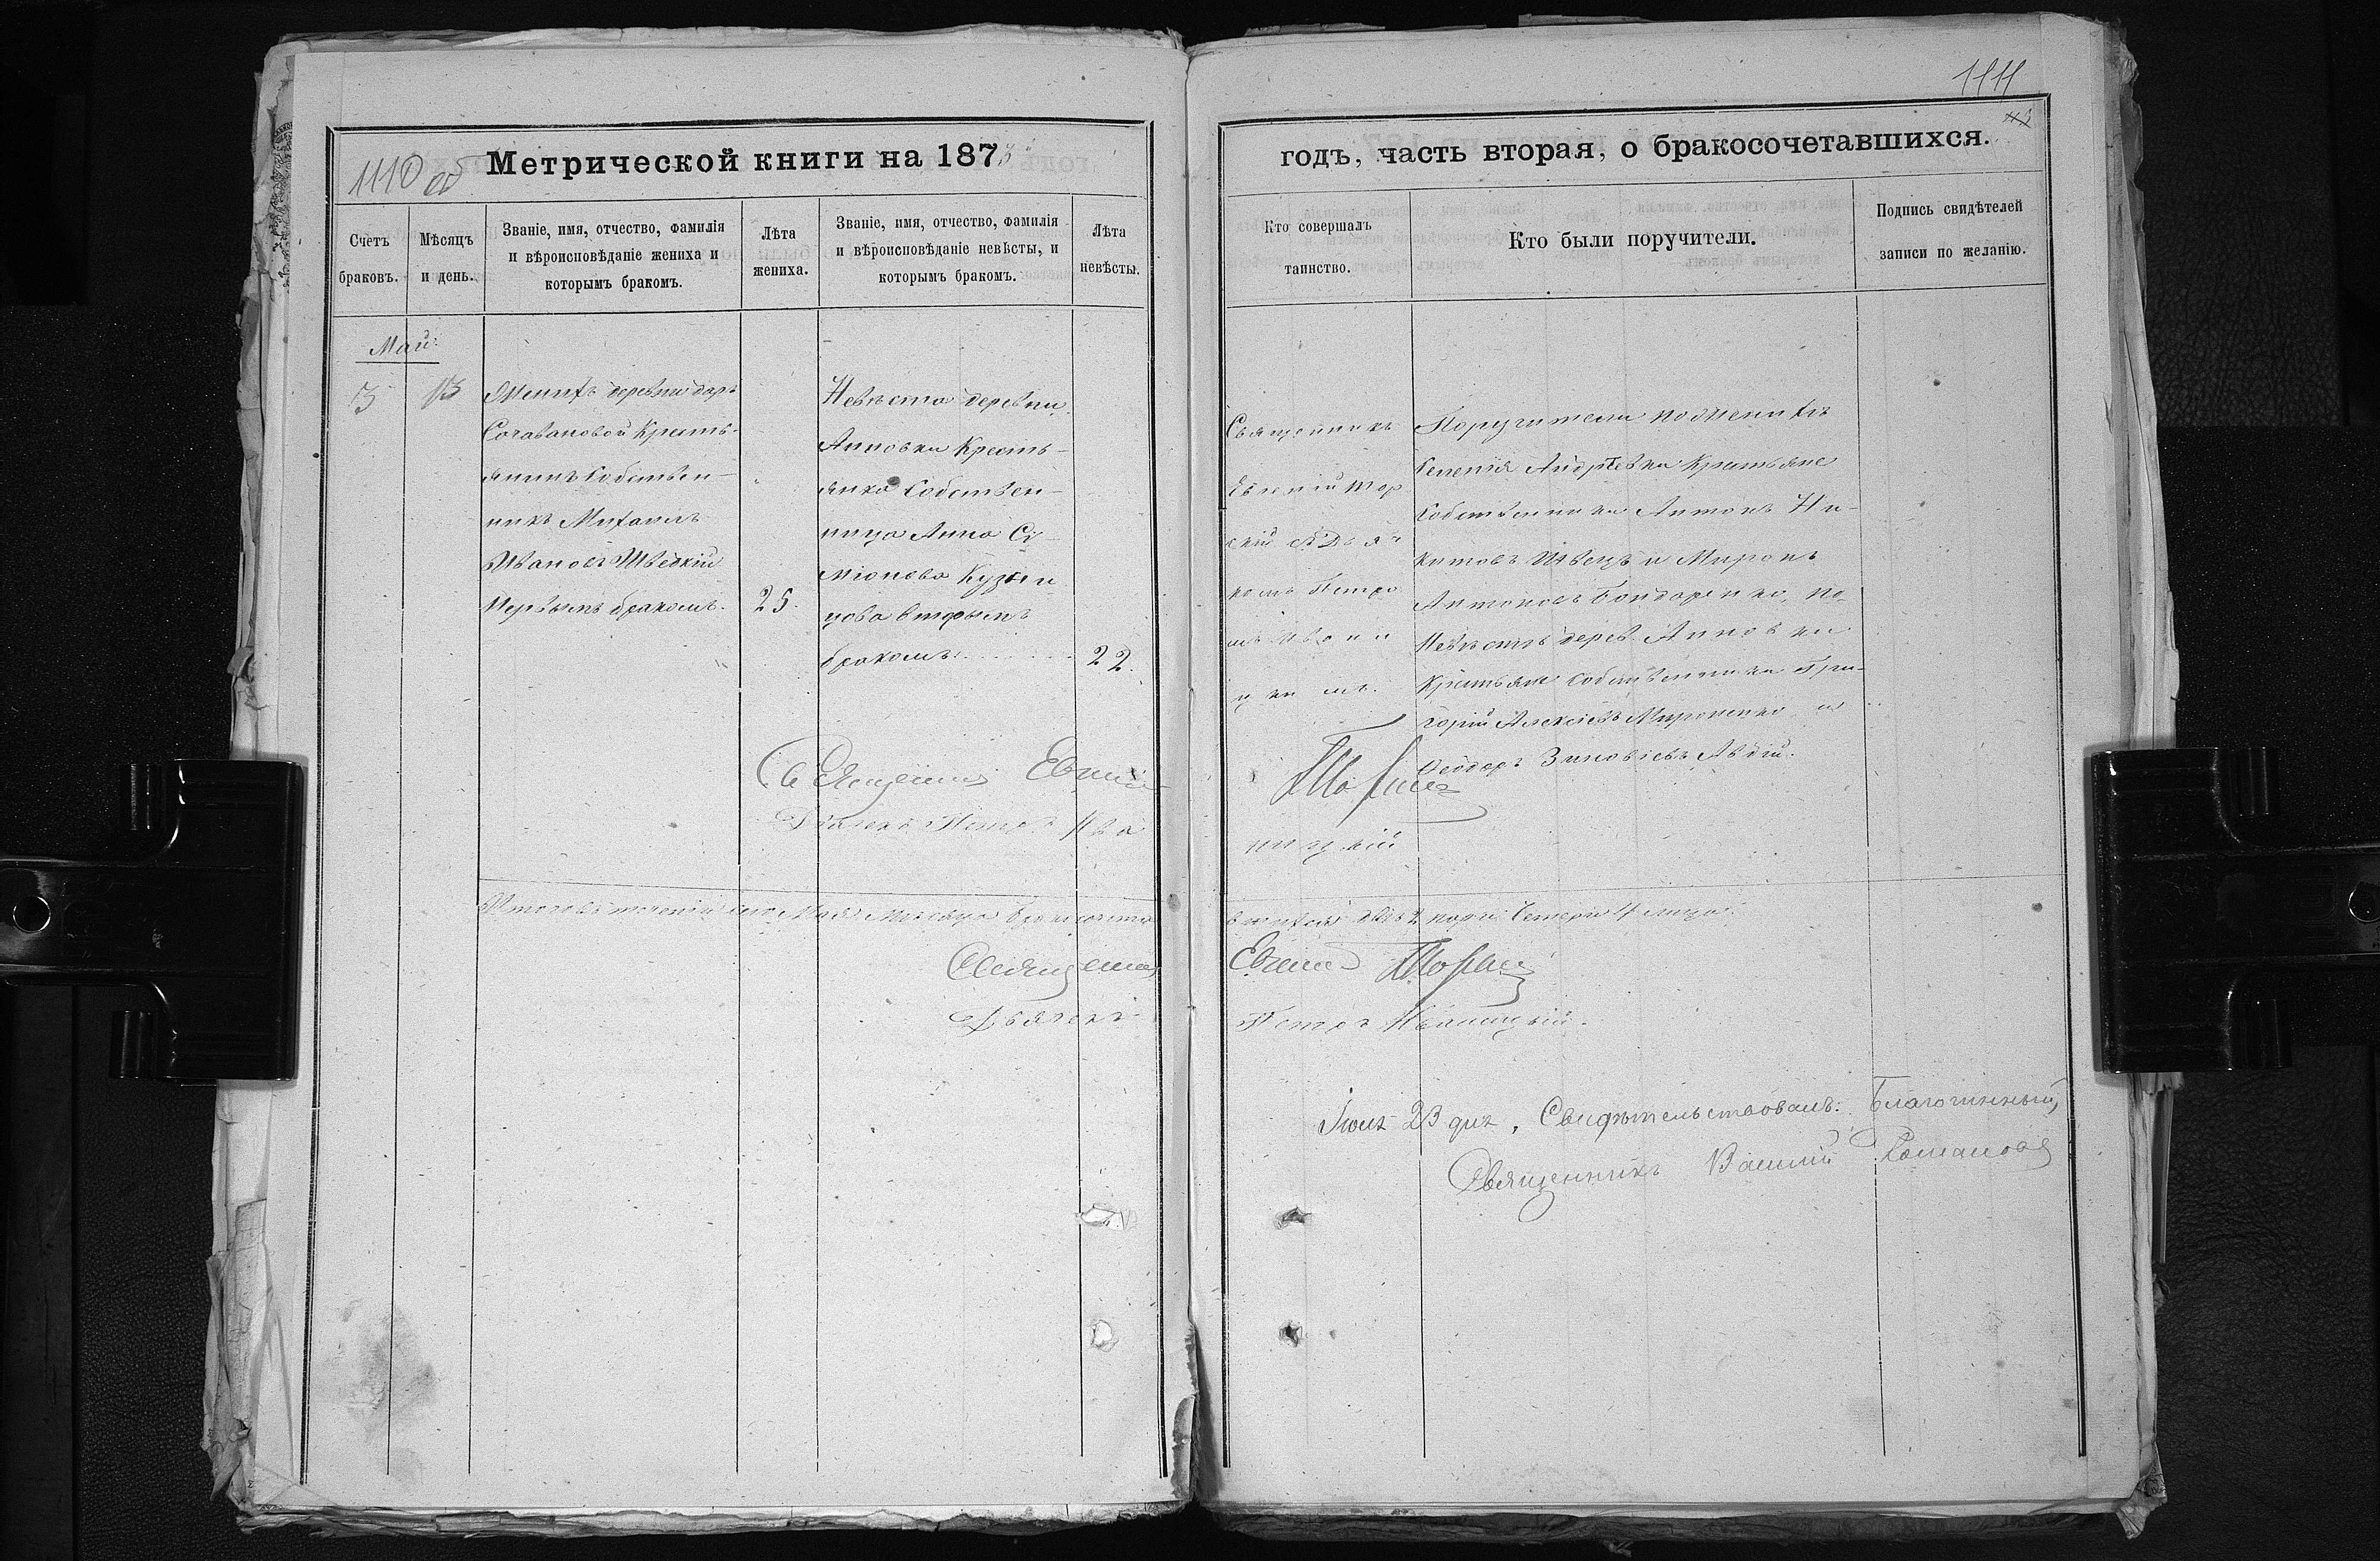 1111
1110 об
Метрической книги на 1873
годъ, часть вторая, о бракосочетавшихся.
Счетъ браковъ.
Мѣсяцъ и день.
Званіе, имя, отчество, фамилія
и вѣроисповѣданіе жениха и
которымъ бракомъ.
Лѣта
жениха.
Званіе, имя, отчество, фамилія
и вѣроисповѣданіе невѣсты, и
которымъ бракомъ.
Лѣта
невѣсты.
Кто совершалъ
таинство.
Кто были поручители.
Подпись свидѣтелей
записи по желанію.
Май.
3 13
Женихъ деревни
Кресть-
янинъ Собствен-
никъ Михаилъ
Ивановъ Шведкій
Первымъ бракомъ.
25.
Невѣста деревни
Анновки Кресть-
янка Собствен-
ница Анна Си-
міонова Кузни-
цова вторымъ
бракомъ.
22.
Священникъ
Евгеній
скій съ Дья
комъ Петро
мъ Ивани
цкимъ.
Поручители по женихѣ
Крестьяне
Собственники Антонъ Ни-
китовъ Швецъ и Миронъ
Антоновъ Бондаренко, по
Невѣстѣ дерев. Анновки
Крестьяне Собственники Гри-
горій Алексіевъ Мироненко и
Ѳеодоръ Зиновіевъ Авдій.
Священникъ Евгеній
Дьячекъ Петръ Ива
ницкій
Итого въ теченіи сего Мая Мѣсяца бракосочета
вшихся двѣ 2 пары Четыри 4 лица.
Священникъ Евгеній
Дьячекъ Петръ Иваницкій.
Іюля 23 дня, Свидѣтельствовалъ: Благочинный,
Священникъ Василій Романовъ